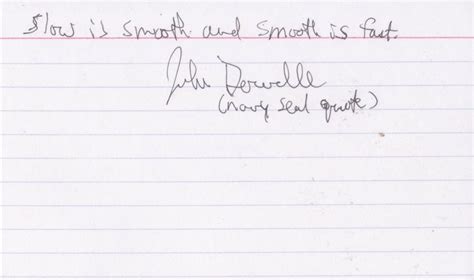 Slow is smooth and smooth is fast.
John Derwelle
(navy seal quote)